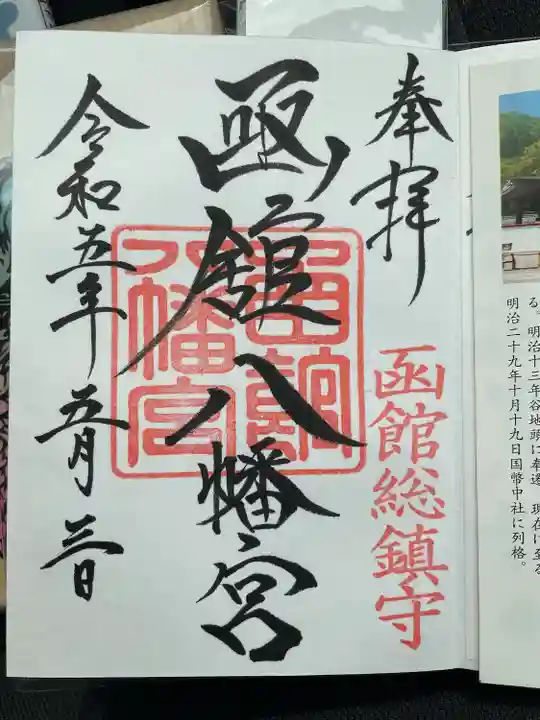 奉拝
函館総鎮守
函館八幡宮
函館
八幡宮
令和五年五月三日
る。明治十三年谷地頭に奉遷、現在に至る
明治二十九年十月十九日国幣中社に列格。